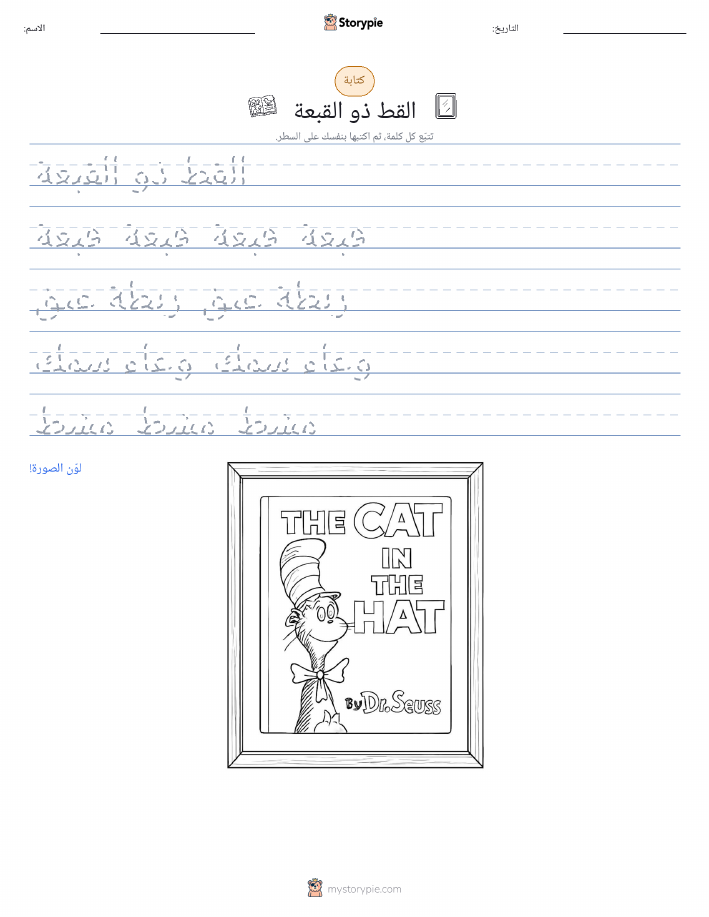 Storypie
الاسم:
التاريخ:
كتابة
القط ذو القبعة
تتبّع كل كلمة، ثم اكتبها بنفسك على السطر.
القط ذو القبعة
قبعة قبعة قبعة قبعة
ربطة عنق ربطة عنق
وعاء سمك وعاء سمك
مشط مشط مشط
لوّن الصورة!
THE CAT
IN
THE
HAT
By Dr. Seuss
mystorypie.com